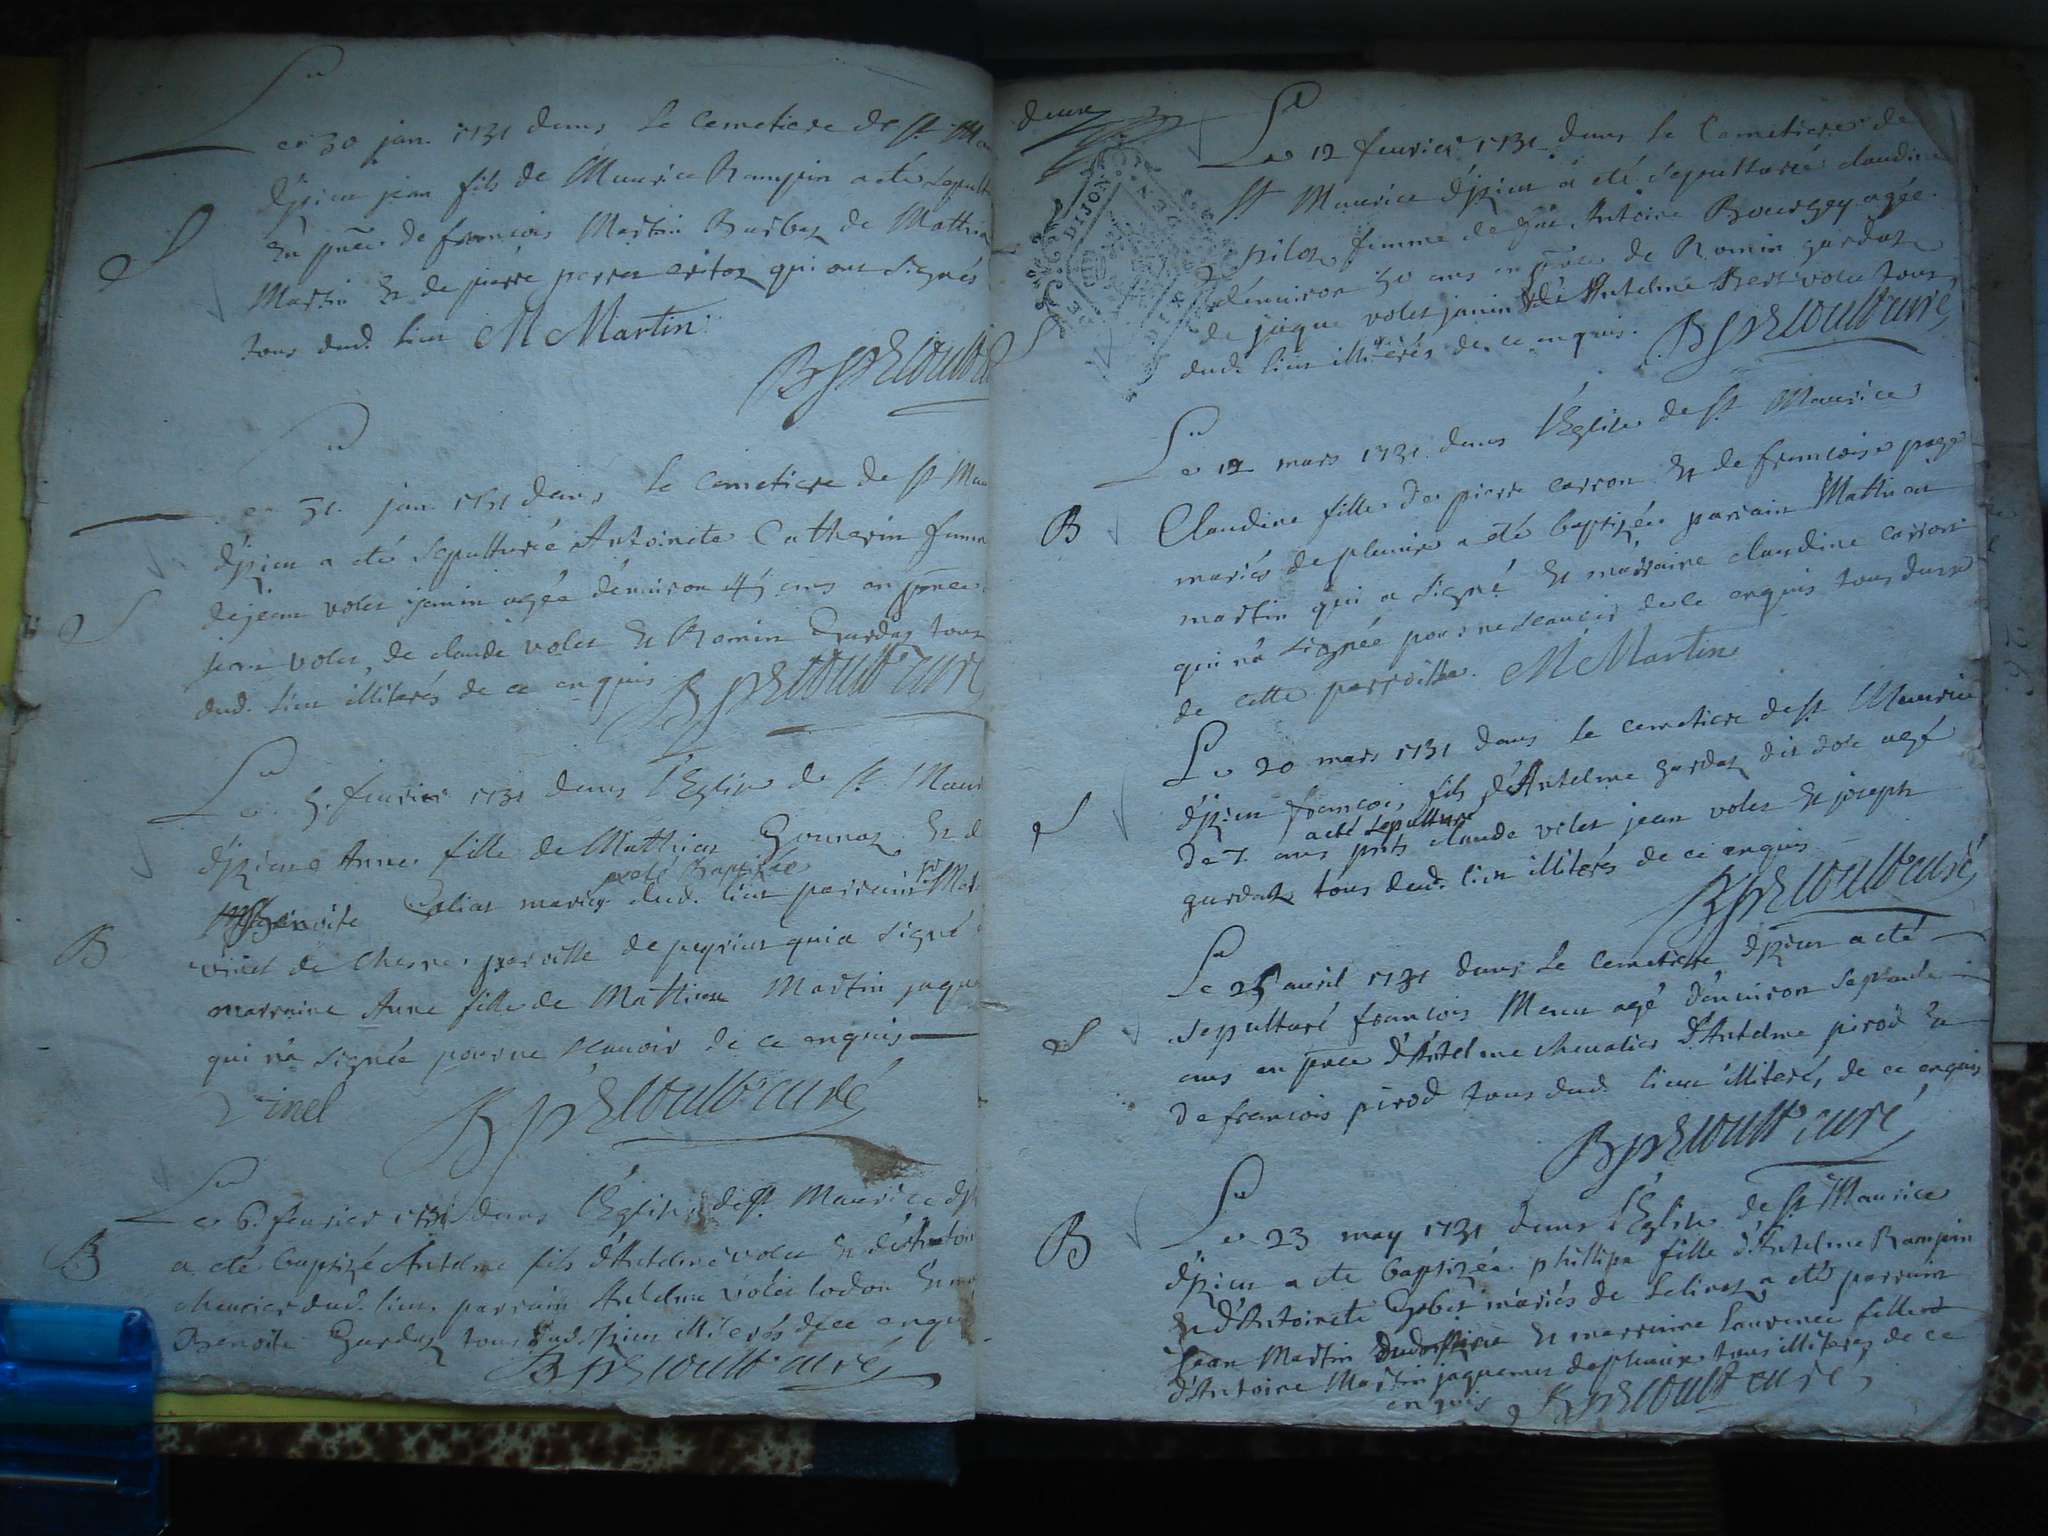 Le 30 jan. 1731 dans le cemetiere de St Ma
d'izieu jean fils de Maurice Rampin a été sepult
En pnce de francois Martin Barbaz de Mathieu
Martin Et de pierre perret qui ont signés
tous dud. lieu M Martin
S
Le 31. jan. 1731 dans le cemetiere de St Mau
d'izieu a été sepulturée Antoinete Catherin femme
de jean volet janin agée d'environ 45 ans en pnce
jean volet, de claude volet Et Romin Gardaz tous
dud. lieu illiterés de ce enquis curé
S
Le 5. feurier 1731 dans l'Eglise de St Maur
d'izieu Anne fille de Mathieu Gonnaz Et d
a eté Baptizée
Benoite mariés dud. lieu parrain Mr
vinel de Chesne parroisse de peyrieu qui a signé
marraine Anne fille de Mathieu Martin jaque
qui n'a signée pour ne scauoir de ce enquis
B
Vinel curé
Le 6. feurier 1731 dans l'Eglise de St Maurice d'iz
a eté baptizé Antelme fils d'Antelme volet Et d'Antoin
dud. lieu. parrain Antelme volet Et m
Benoite Gardaz tous dud. lieu illiterés de ce enqui
B
curé
deux
DIJON
Le 12 feurier 1731 dans le Cemetiere de
St Maurice d'izieu a été sepulturée claudine
piloz femme de feu Antoine Bourgey agée
d'environ 50 ans en pnce de Romin gardaz
de jaque volet janin Et de Antelme Bert volet tous
dud. lieu illiterés de ce enquis. curé
S
Le 12 mars 1731 dans l'Eglise de St Maurice
Claudine fille de pierre carron Et de francoise page
mariés de pleuire a été baptizée parrain Mathieu
martin qui a signé Et marraine claudine carron
qui n'a signée pour ne scauoir de ce enquis tous deux
de cette parroisse. M Martin
B
Le 20 mars 1731 dans le cemetiere de St Maurice
d'izieu francois fils d'Antelme gardaz dit agé
a eté sepulturé
de 7. ans pnts claude volet jean volet Et joseph
gardaz tous dud. lieu illiterés de ce enquis
S
curé
Le 25 auril 1731 dans le Cemetiere d'izieu a eté
sepulturé francois Menu agé d'enuiron septante
ans en pnce d'Antelme chevalier d'Antelme pirod Et
de francois pirod tous dud. lieu illiterés de ce enquis
S
curé
Le 23 may 1731 dans l'Eglise de St Maurice
d'izieu a eté baptizée phillipa fille d'Antelme Rampin
Et d'Antoinete mariés de a été parrain
Jean Martin Et marraine laurence fille
d'Antoine Martin jaquemet de pleuire tous illiterés de ce
enquis curé
B